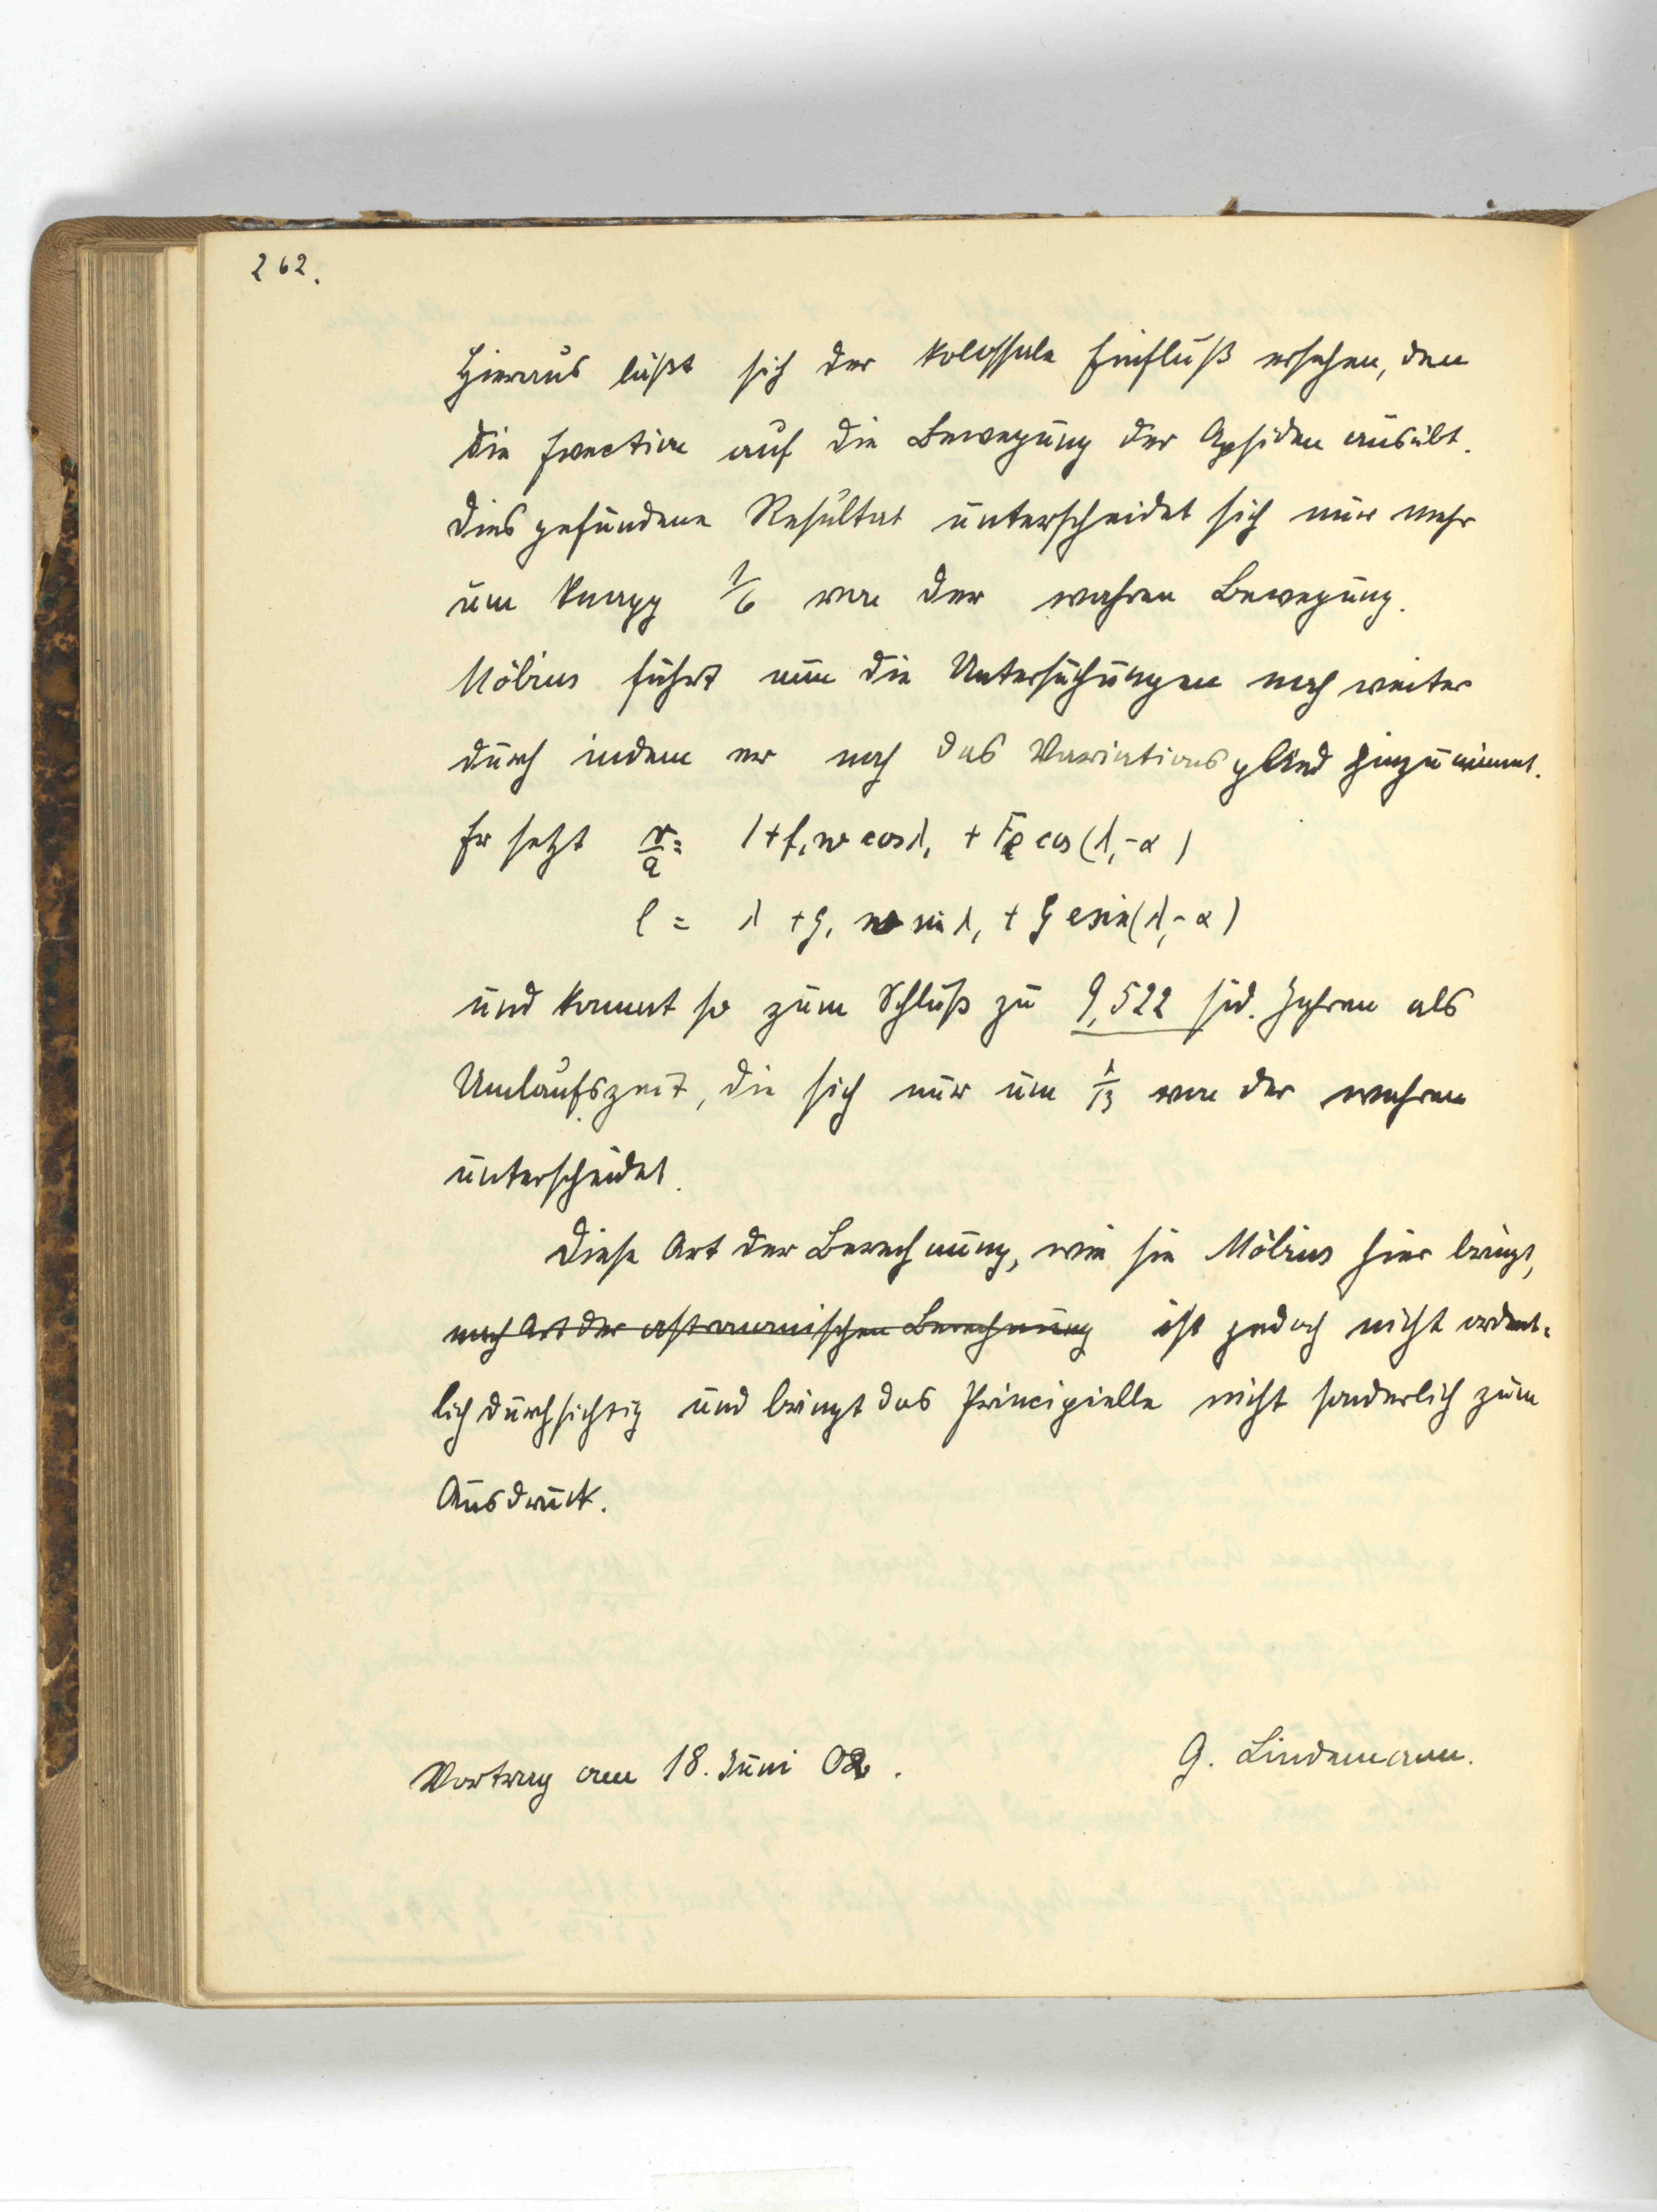 262.
Hieraus läßt sich der kolossale Einfluß ersehen, den
die Evection auf die Bewegung der Apsiden ausübt.
Dies gefundene Resultat unterscheidet sich nur mehr
um knapp 1/6 von der wahren Bewegung.
Möbius führt nun die Untersuchungen noch weiter
durch indem er noch das Variationsglied hinzunimmt.
Er setzt r/a = 1 + f, w cos λ, + F e cos (λ, - α)
l = λ + g, w sin λ, + G e sin (λ, - α)
und kommt so zum Schluß zu 9,522 sid. Jahren als
Umlaufszeit, die sich nur um 1/13 von der wahren
unterscheidet.
Diese Art der Berechnung, wie sie Möbius hier bringt,
nach Art der astronomischen Berechnung ist jedoch nicht ordent-
lich durchsichtig und bringt das Principielle nicht sonderlich zum
Ausdruck.
Vortrag am 18. Juni 02.
G. Lindemann.